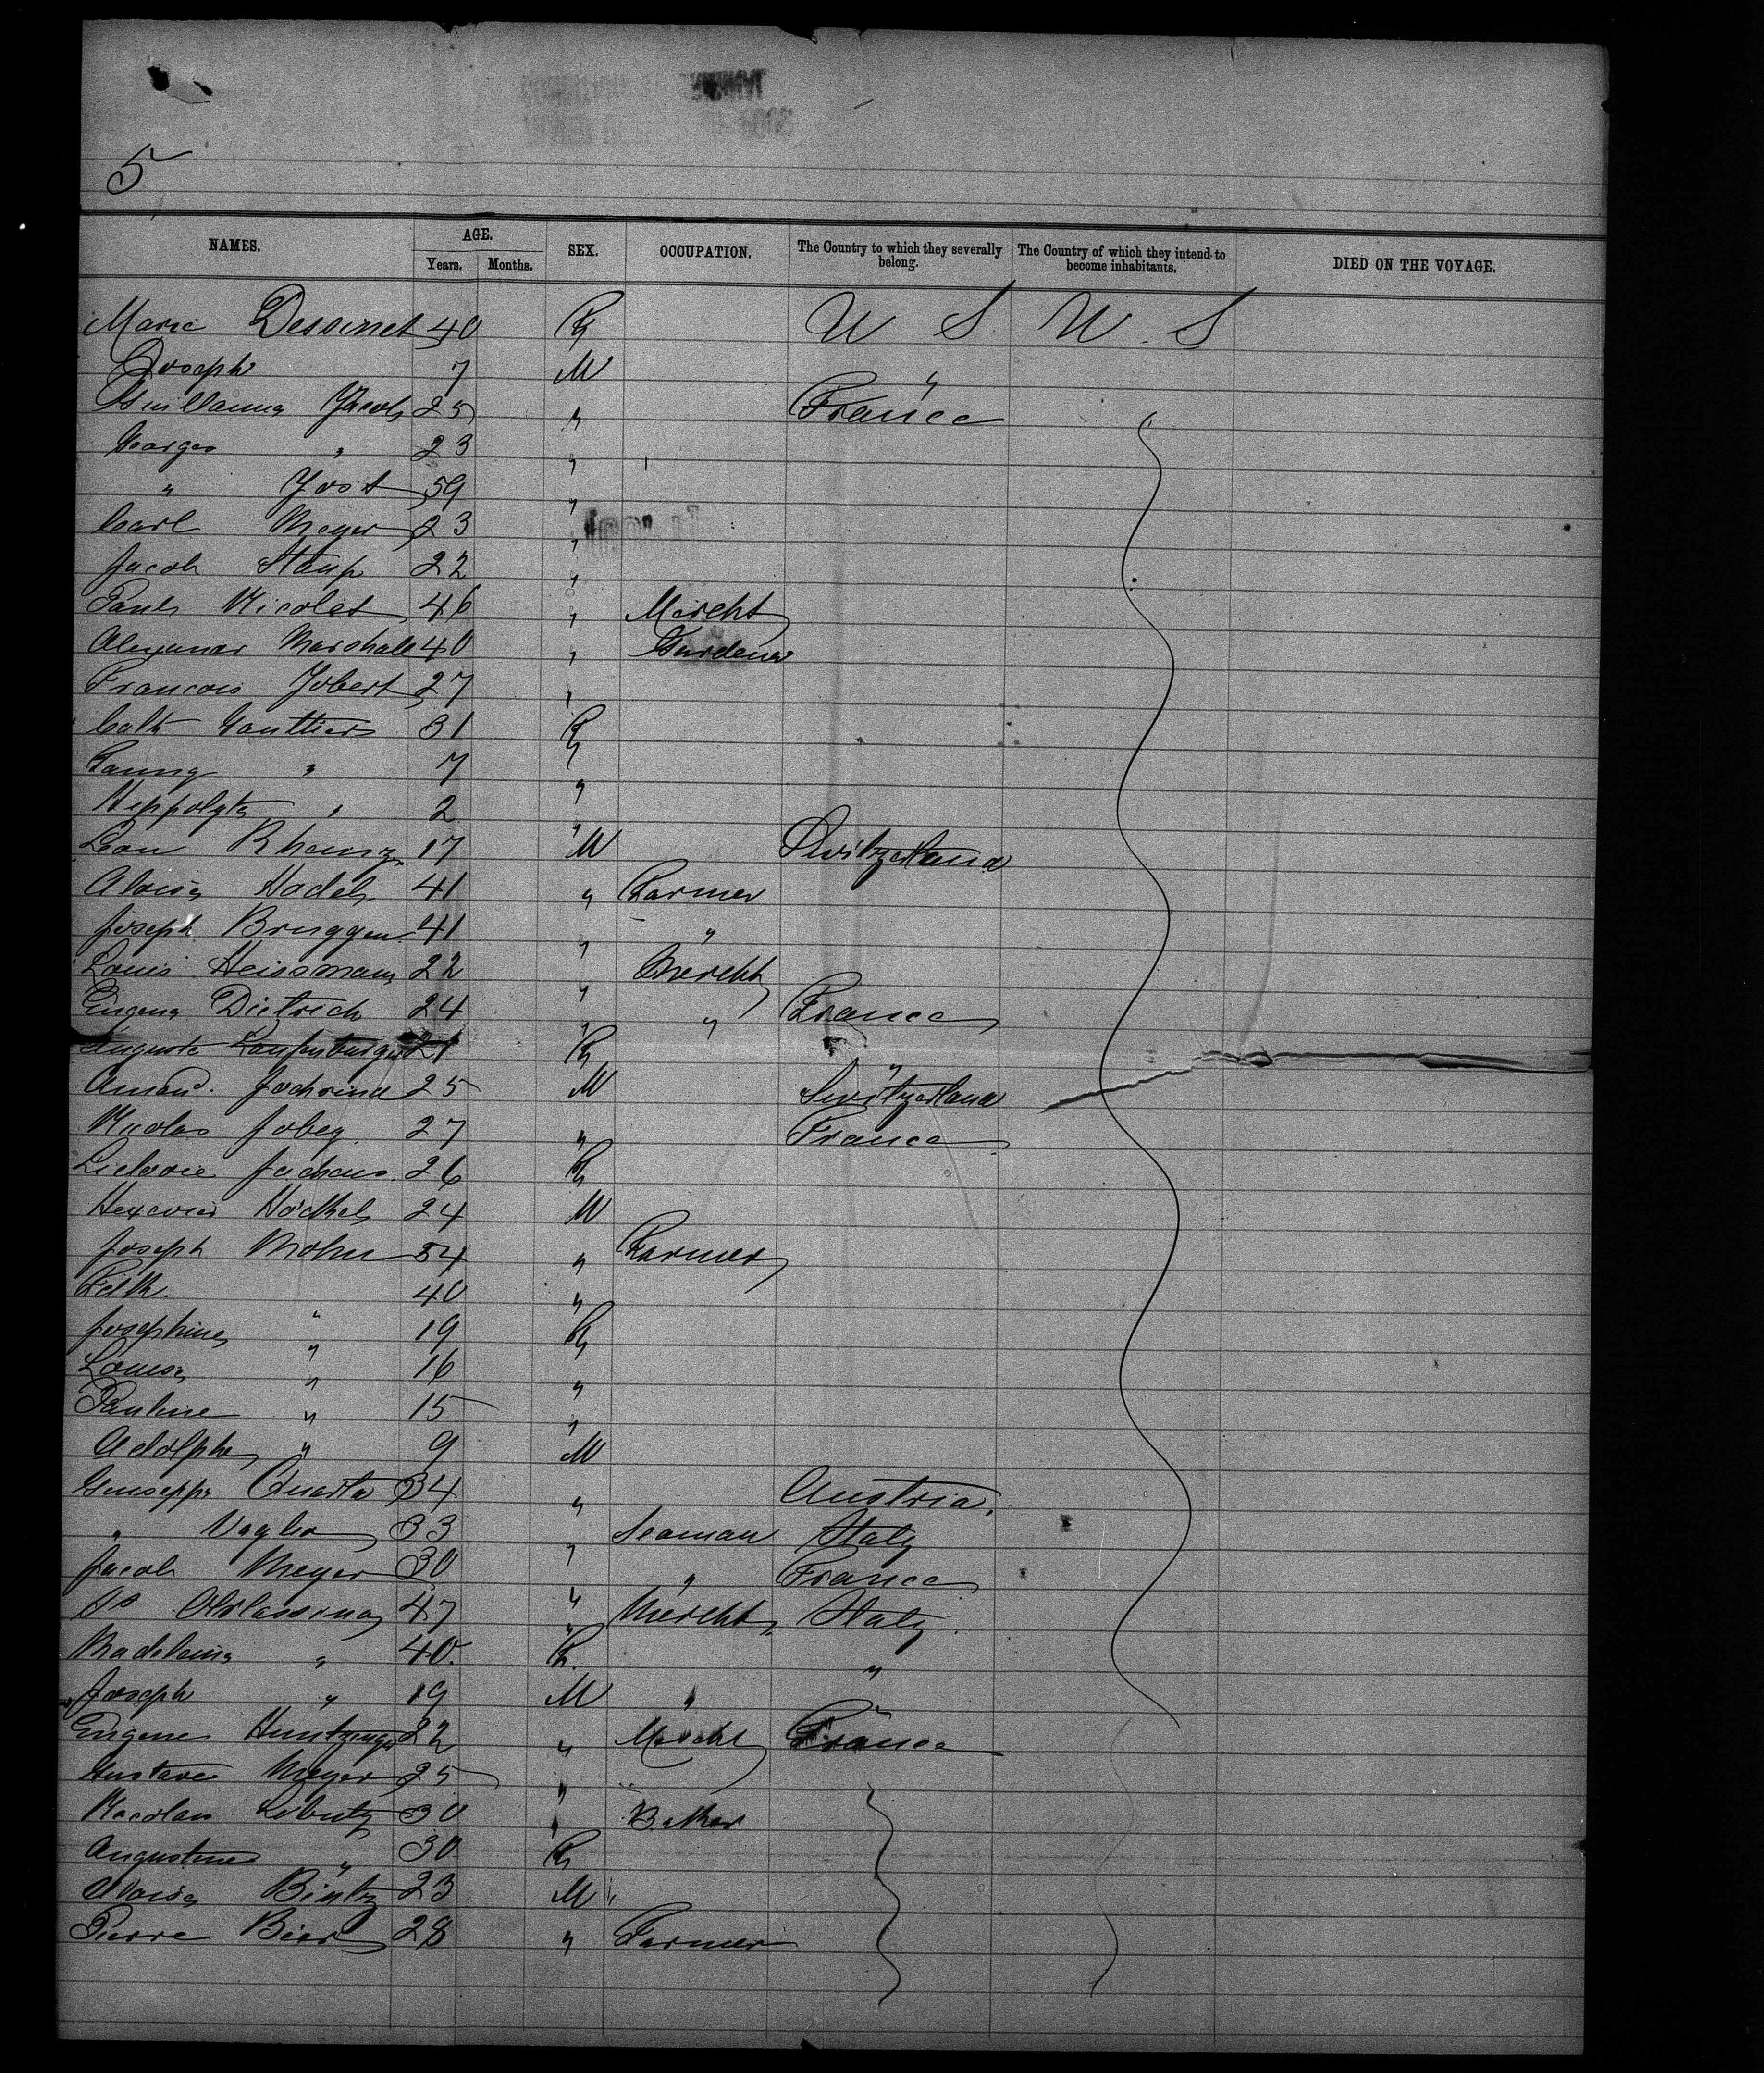 5
NAMES. AGE. SEX. OCCUPATION. The Country to which they severally belong. The Country of which they intend to become inhabitants. DIED ON THE VOYAGE.
Years. Months.
Marie Dessinet 40 F U S U. S
Joseph 7 M "
Guillaume Jacob 25 " France
Georges " 23 "
" Yost 59 "
Carl Meyer 23 "
Jacob Staup 22 "
Paul Nicolet 46 " Mercht
Marshall 40 " Gardener
Francois Jobert 27 "
Cath Gauthier 31 F
Fanny " 7 "
Hippolyte " 2 "
Leon 17 M Switzerland
Alois Hodel 41 " Farmer
Joseph Bruggen 41 " "
Louis Heissmann 22 " Mercht
Eugene Dietrich 24 " " France
Auguste Laufenburger 21 F "
25 M Switzerland
Nicolas Jobey 27 " France
26 F
24 M
Joseph Mohn 54 " Farmer
40 "
Josephine " 19 F
Louise " 16 "
Pauline " 15 "
Adolphe " 9 M
Giuseppe Quarta 34 " Austria.
" Voglio 33 " Seaman Italy
Jacob Meyer 30 " " France
47 " Mercht Italy
Madeleine " 40. F. "
Joseph " 19 M " "
Eugene Huntzinger 22 " Mercht France
Gustave Meyer 25 " "
Nicolas 30 " Baker
Augustine " 30 F
Alois Bintz 23 M
Pierre Bier 28 " Farmer